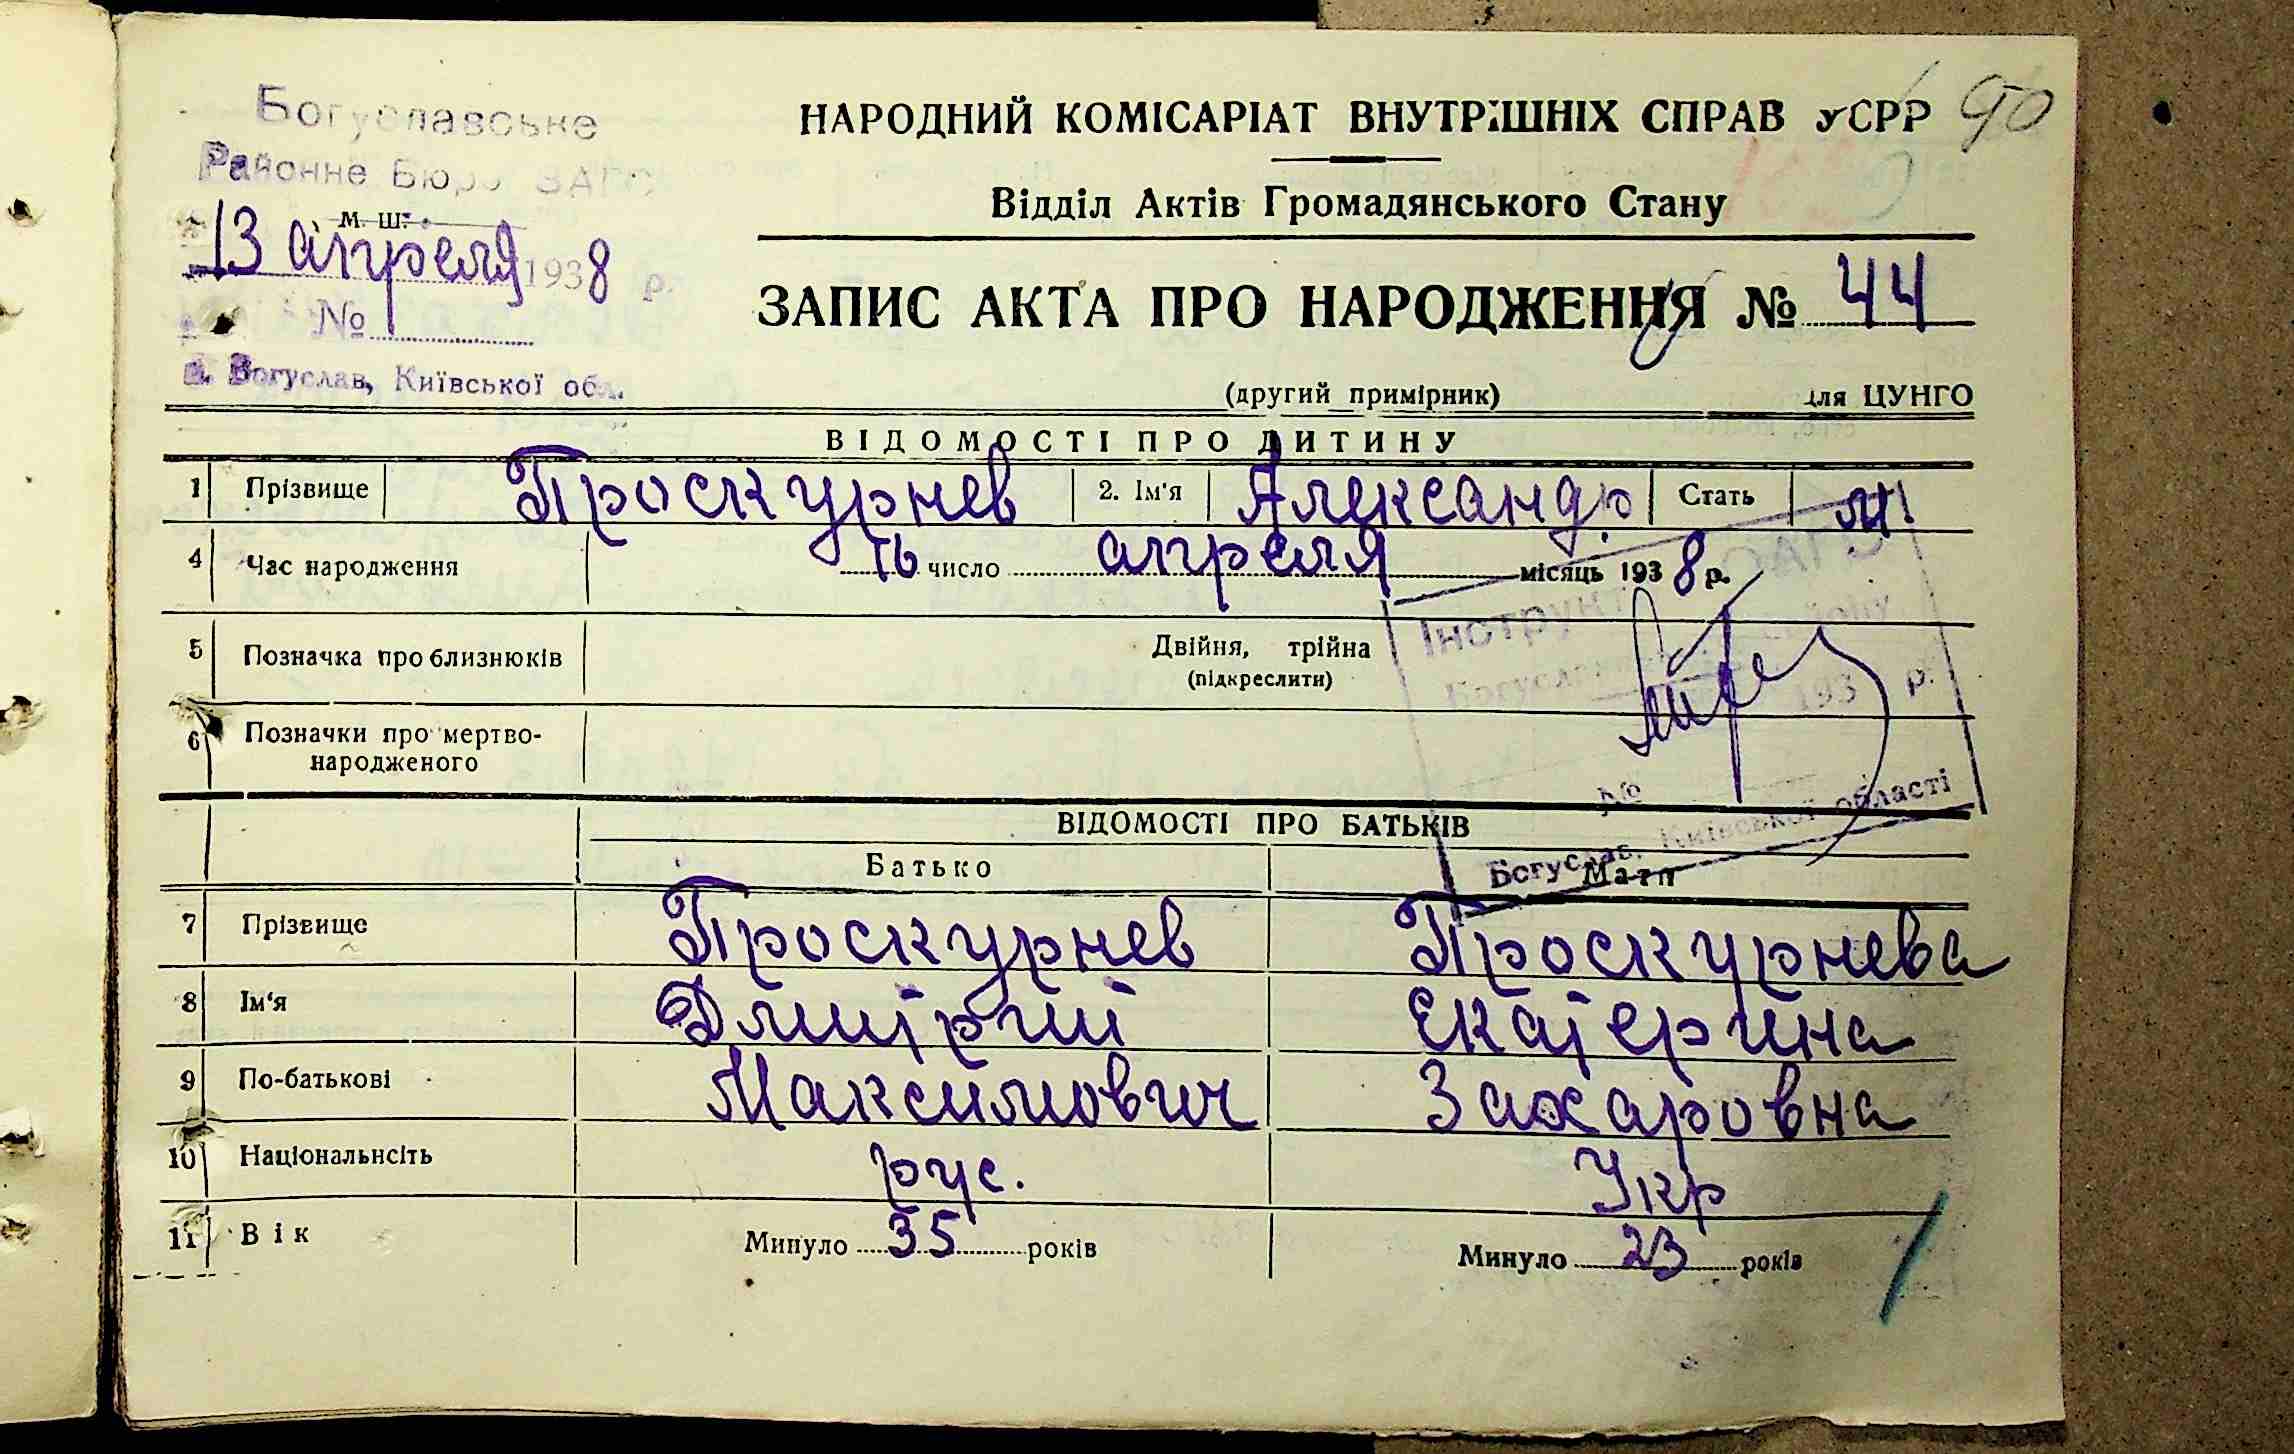 90
Богуславське
Районне Бюро ЗАГС
НАРОДНИЙ КОМІСАРІАТ ВНУТРІШНІХ СПРАВ УСРР
Відділ Актів Громадянського Стану
м. ш.
13 апреля 1938 р.
№
м. Богуслав, Київської обл.
ЗАПИС АКТА ПРО НАРОДЖЕННЯ № 44
(другий примірник) для ЦУНГО
ВІДОМОСТІ ПРО ДИТИНУ
1 Прізвище Проскурнев 2. Ім'я Александр Стать м
4 Час народження число апреля місяць 1938 р.
5 Позначка про близнюків Двійня, трійна
(підкреслити)
6 Позначки про мертво-
народженого
Інструкт
193 р.
№
Богуслав, Київської області
ВІДОМОСТІ ПРО БАТЬКІВ
Батько Мати
7 Прізвище Проскурнев Проскурнева
8 Ім'я Дмитрий Екатерина
9 По-батькові Максимович Захаровна
10 Національнсіть рус. Укр
11 Вік Минуло 35 років Минуло 23 років